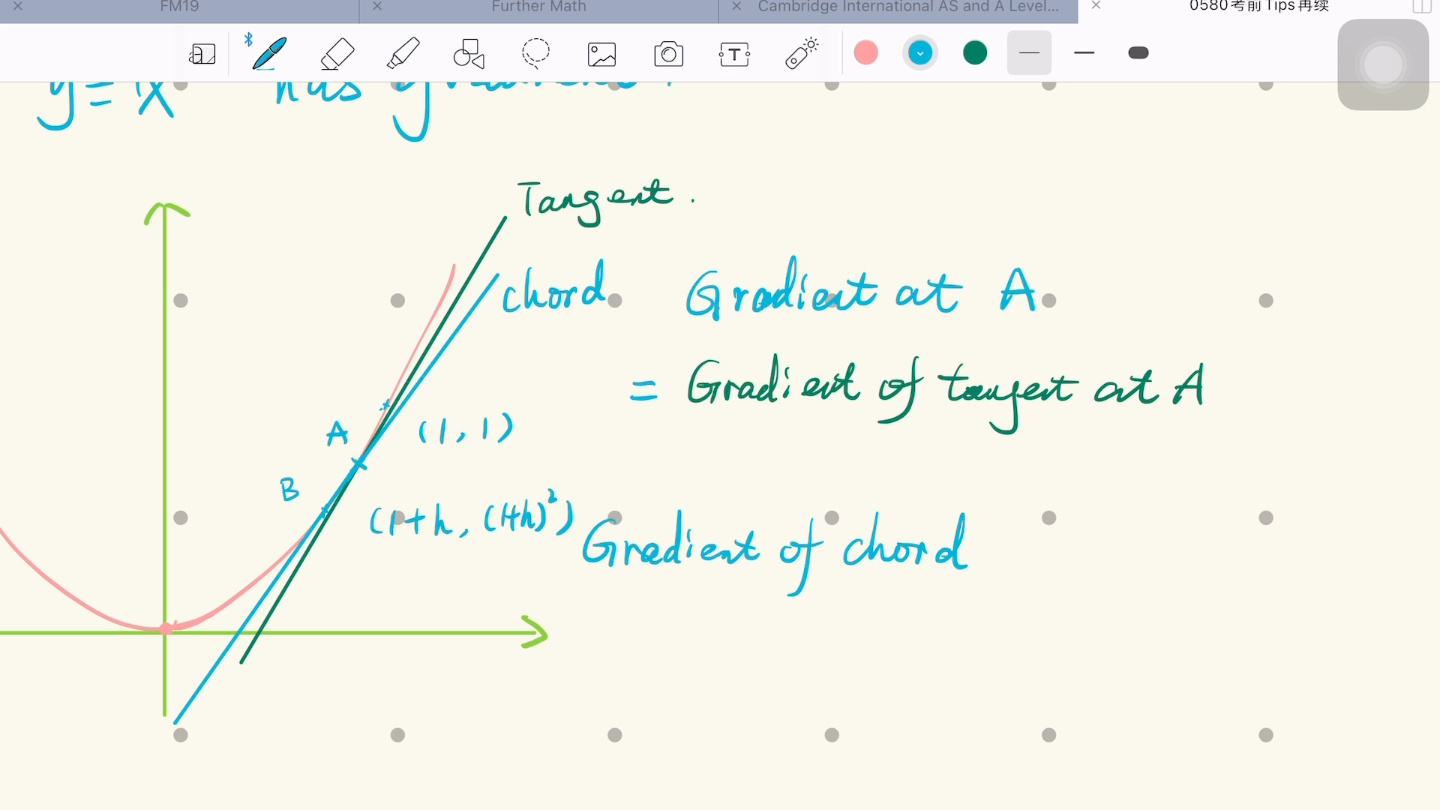 FM19
Further Math
Cambridge International AS and A Level...
0580考前Tips再续
has
Tangent.
chord
Gradient at A
= Gradient of tangent at A
A
(1, 1)
B
(1+h, (1+h)²)
Gradient of chord